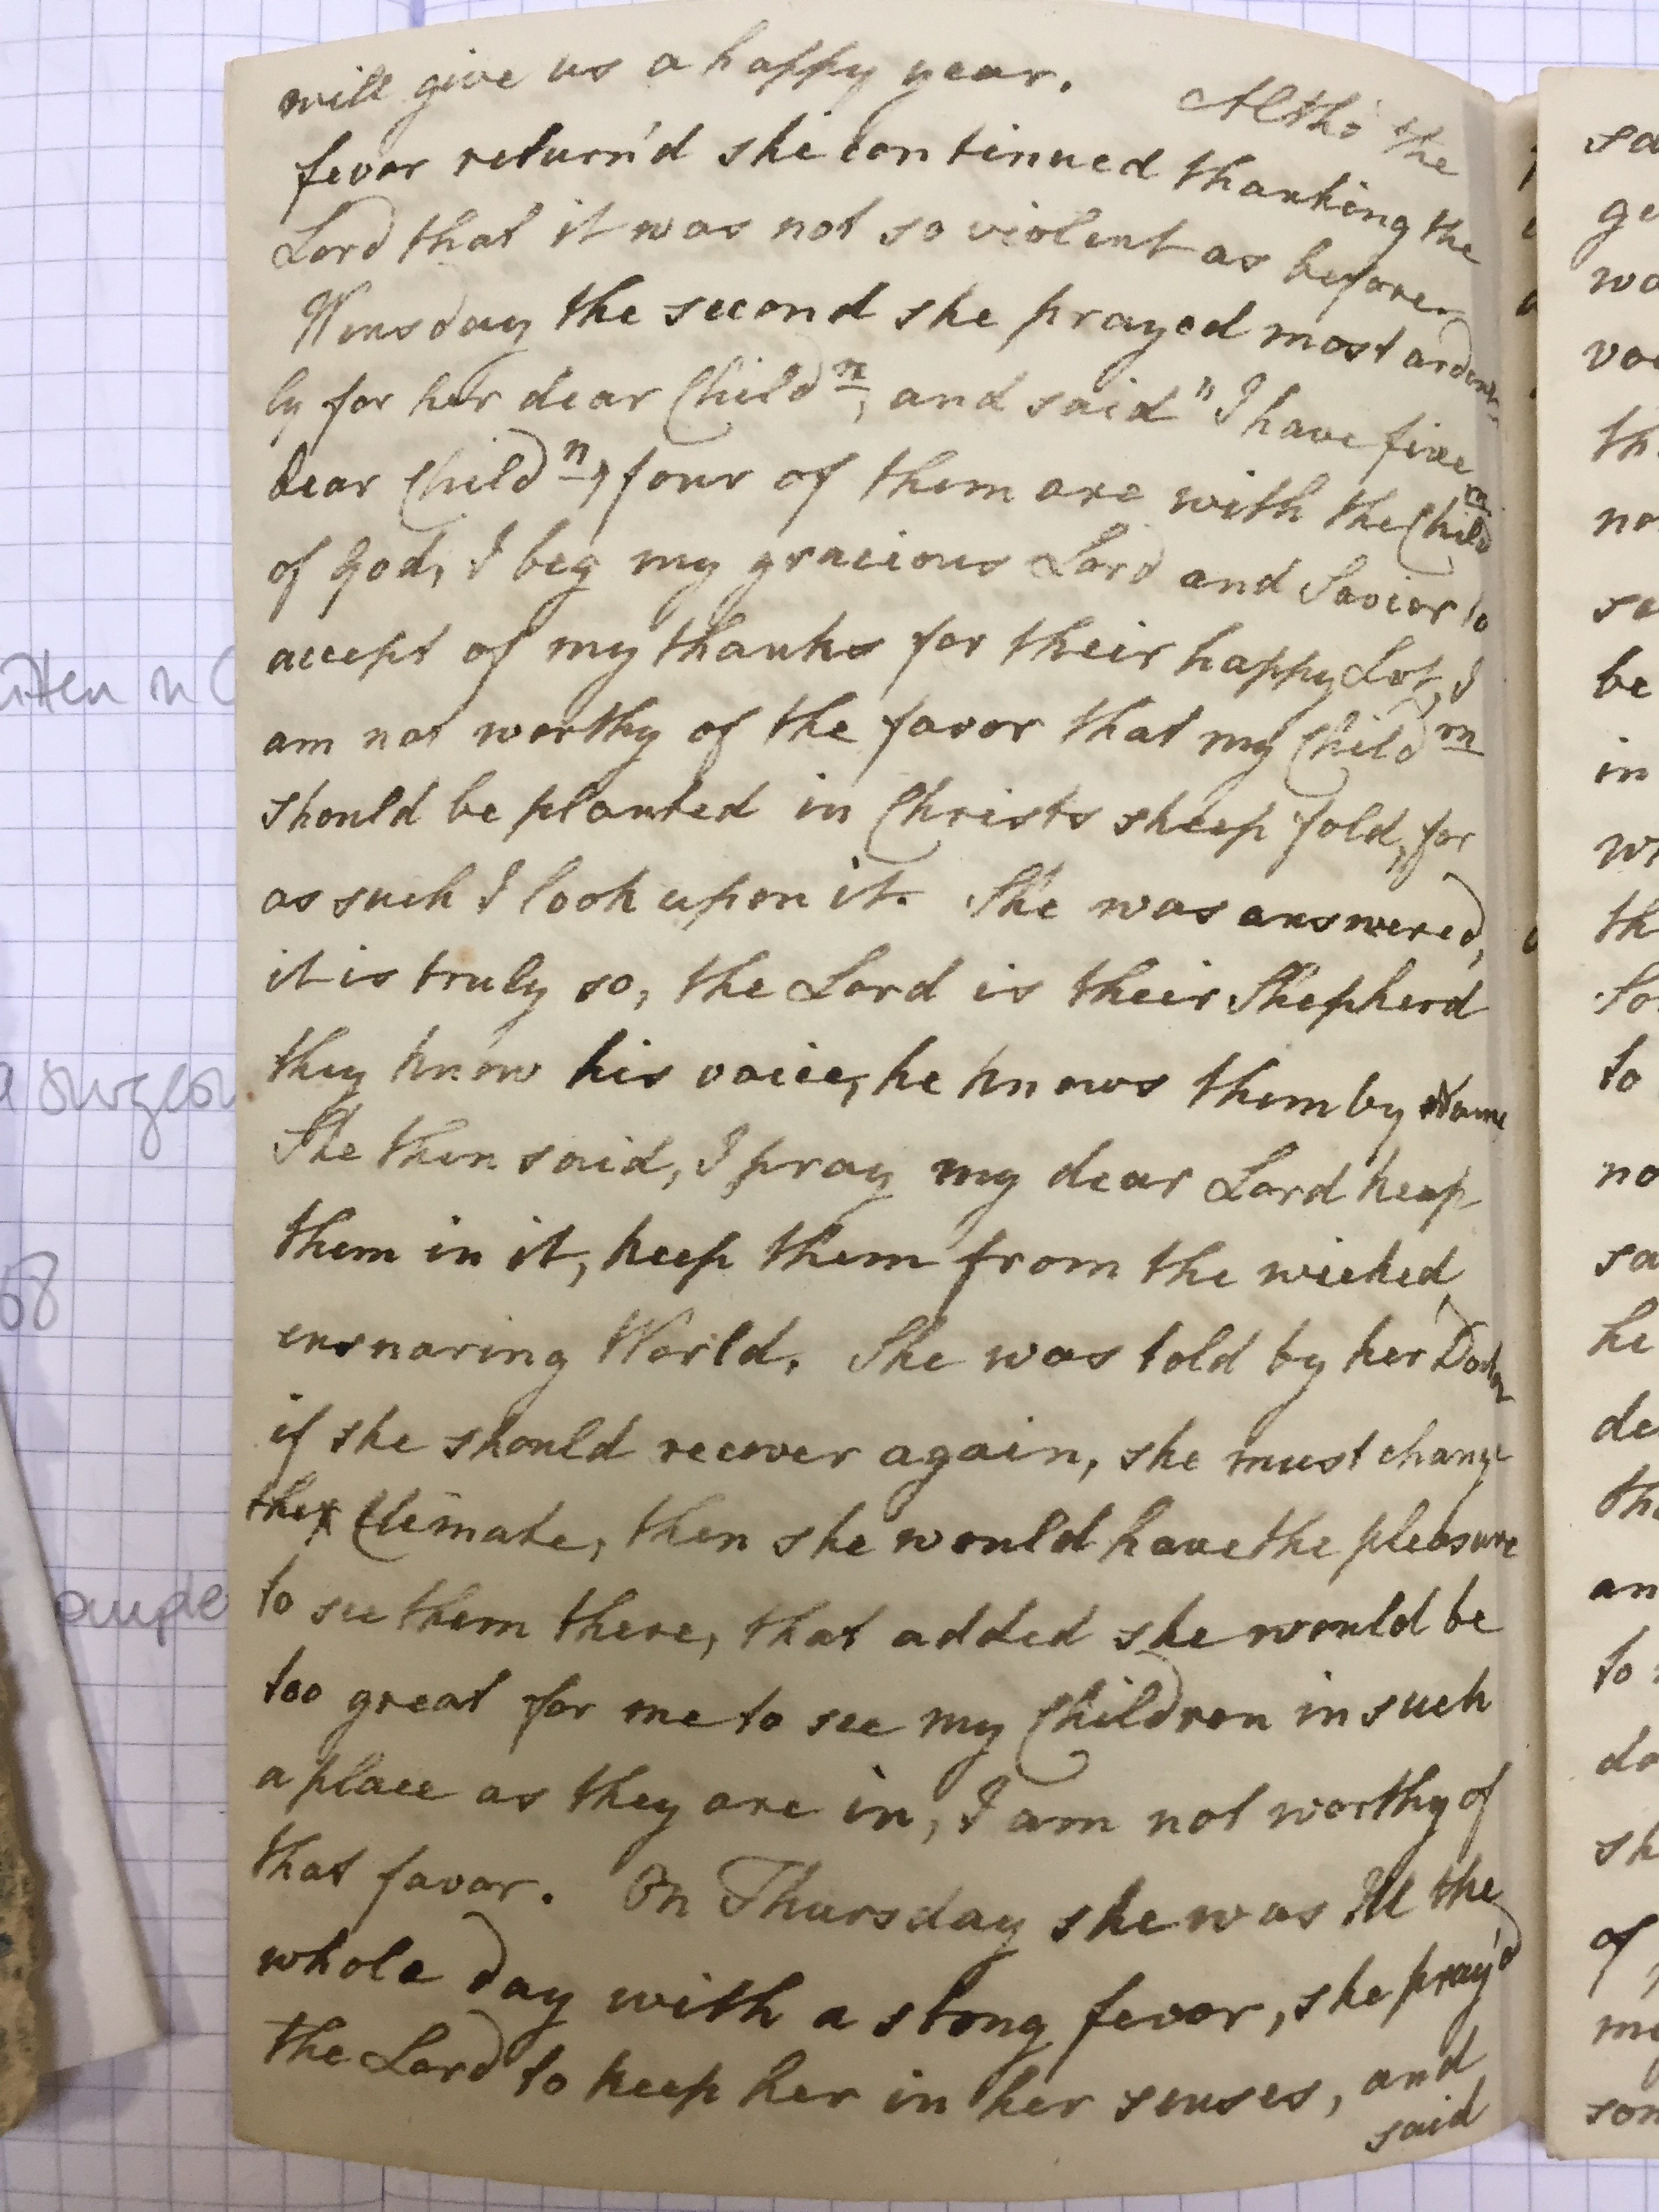 will give us a happy year. Altho' the
fevor return'd she continued thanking the
Lord that it was not so violent as before.
Wensday the second she prayed most ardent-
ly for her dear Childn, and said "I have five
dear Childn, four of them are with the Childn
of God, I beg my gracious Lord and Savior to
accept of my thanks for their happy Lot, I
am not worthy of the favor that my Childrn
should be planted in Christs sheep fold, for
as such I look upon it. She was answered,
it is truly so, the Lord is their Shepherd
they know his voice, he knows them by Name
She then said, I pray my dear Lord keep
them in it, keep them from the wicked,
ensnaring World. She was told by her Doctor
if she should recover again, she must change
the Climate, then she would have the pleasure
to see them there, that added she would be
too great for me to see my Children in such
a place as they are in, I am not worthy of
that favor. On Thursday she was Ill the
whole day with a stong fevor, she pray'd
the Lord to keep her in her senses, and
said
68
sa
ge
wo
th
no
be
in
th
to
no
sa
he
de
an
to
sh
of